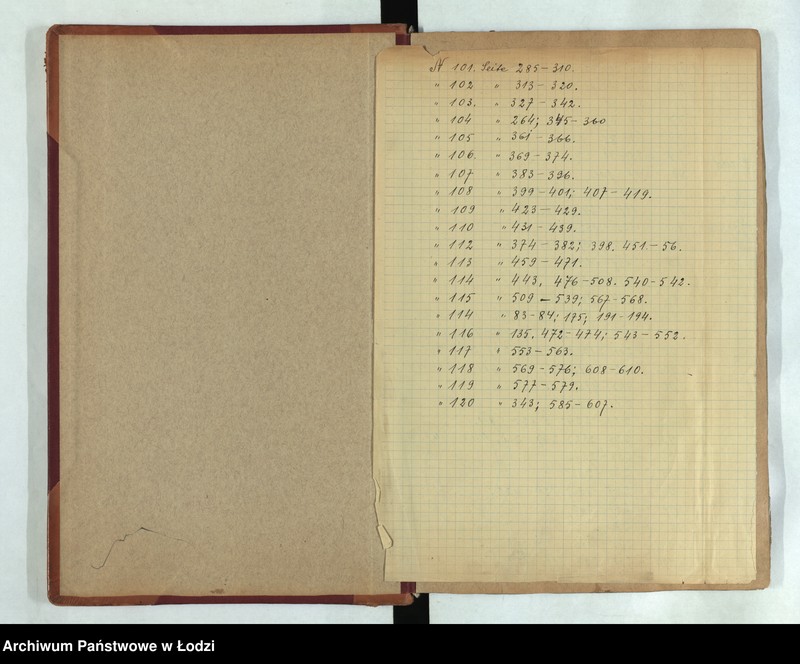 № 101. Seite 285-310.
„ 102 „ 313-320.
„ 103. „ 327-342.
„ 104 „ 264; 345-360
„ 105 „ 361-366.
„ 106. „ 369-374.
„ 107 „ 383-396.
„ 108 „ 399-401; 407-419.
„ 109 „ 423-429.
„ 110 „ 431-439.
„ 112 „ 374-382; 398. 451.-56.
„ 113 „ 459-471.
„ 114 „ 443, 476-508. 540-542.
„ 115 „ 509-539; 567-568.
„ 114 „ 83-84; 175; 191-194.
„ 116 „ 135, 472-474; 543-552.
„ 117 „ 553-563.
„ 118 „ 569-576; 608-610.
„ 119 „ 577-579.
„ 120 „ 343; 585-607.
Archiwum Państwowe w Łodzi